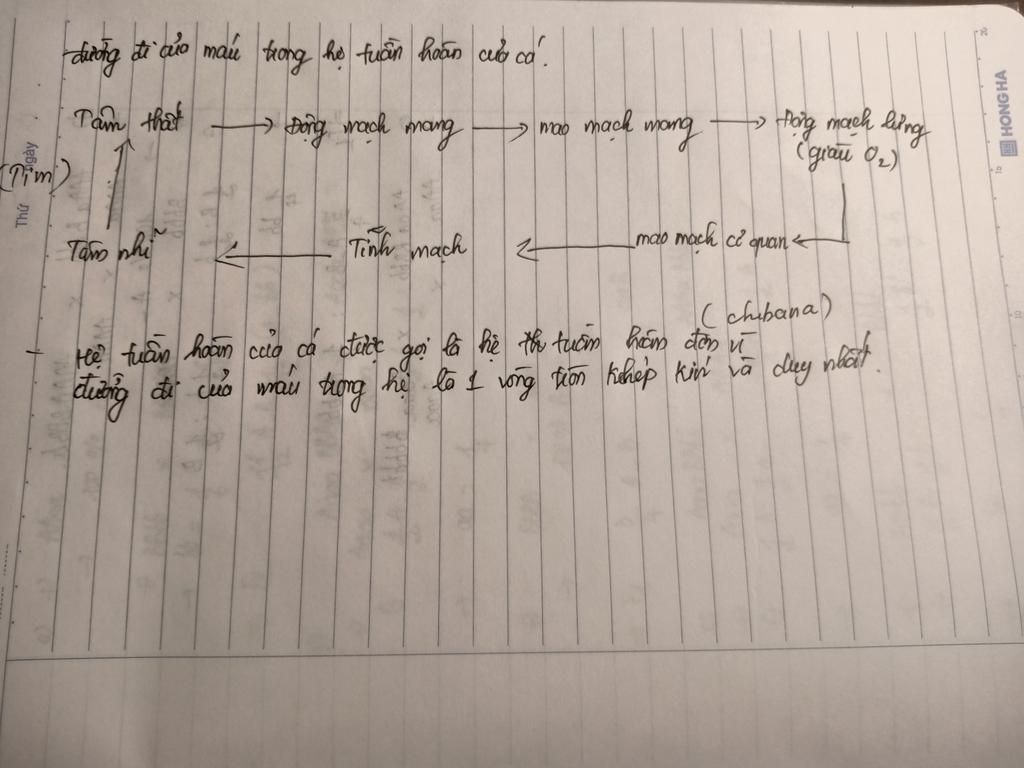 đường đi của máu trong hệ tuần hoàn của cá.
Tâm thất → Động mạch mang → mao mạch mang → Động mạch lưng
(giàu O₂)
(Tim)
Tâm nhĩ ← Tĩnh mạch ← mao mạch cơ quan ←
(chibana)
- Hệ tuần hoàn của cá được gọi là hệ th tuần hoàn đơn vì
đường đi của máu trong hệ là 1 vòng tròn khép kín và duy nhất.
Thứ
Ngày
HONG HA
20
10